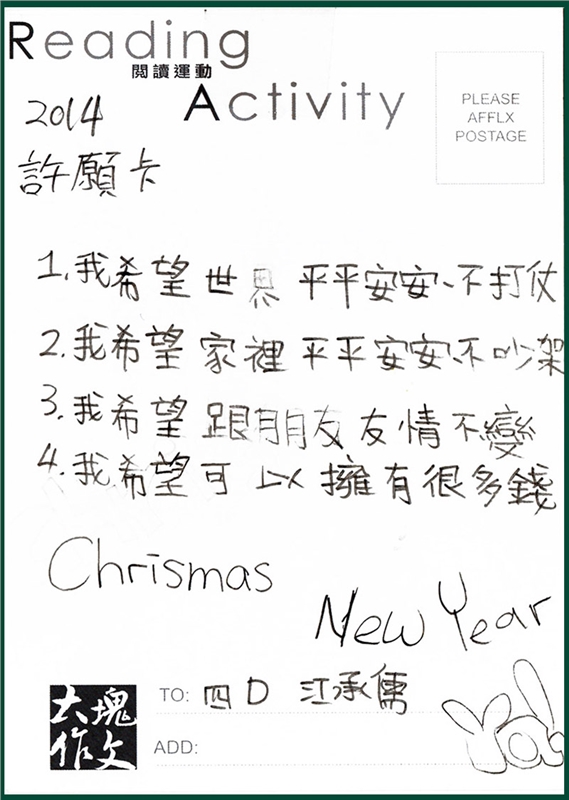 Reading
閱讀運動
Activity
PLEASE
AFFLX
POSTAGE
2014
許願卡
1.我希望世界平平安安、不打仗
2.我希望家裡平平安安、不吵架
3.我希望跟朋友友情不變
4.我希望可以擁有很多錢
Chrismas
New Year
大塊
作文
TO: 四D 江承儒
Ya!
ADD: